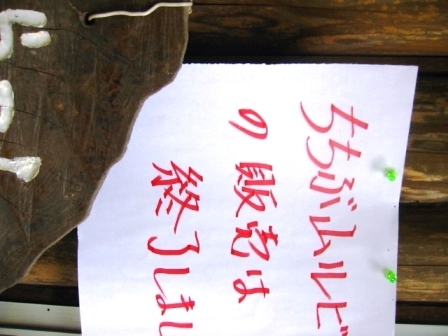 ちちぶ山ルビ
の販売は
終了しまし